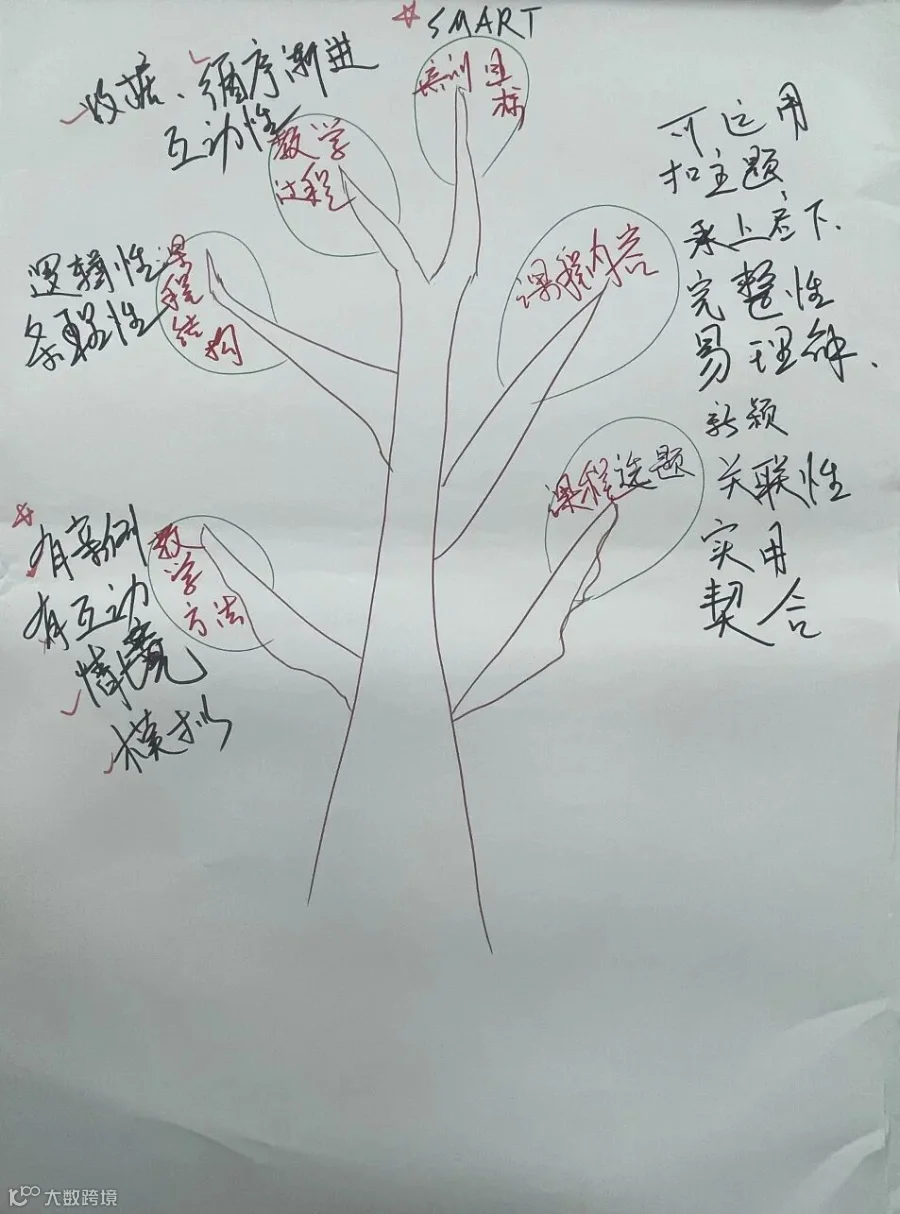 SMART
培训目标
收放、循序渐进
互动性
教学
过程
逻辑性
条理性
课程结构
可运用
扣主题
承上启下.
完整性
易理解.
课程内容
新颖
关联性
实用
契合
课程选题
有案例
有互动
情境
模拟
教学方法
大数跨境